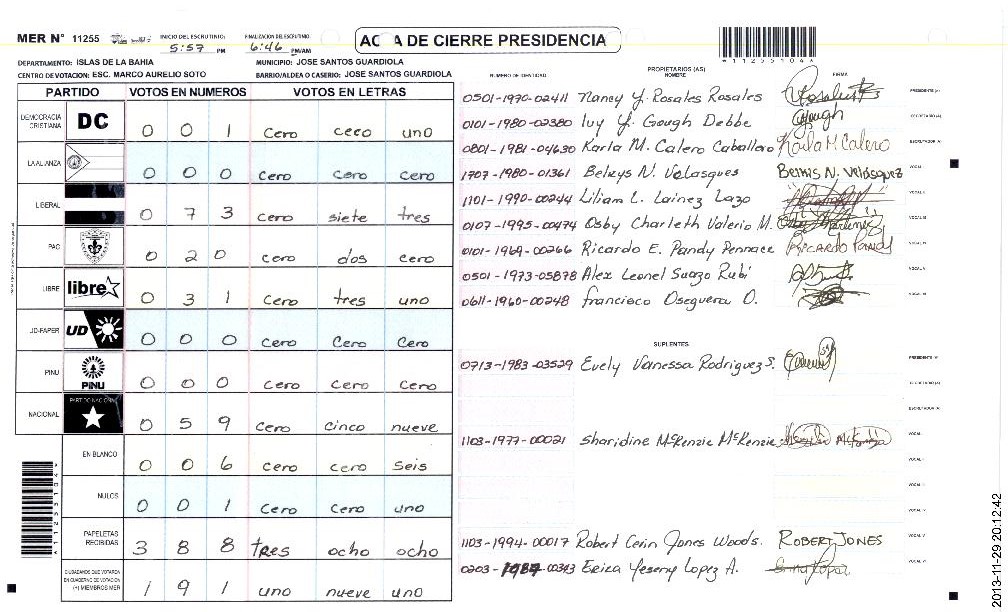 MER N° 11255
INICIO DEL ESCRUTINIO: 5:57 PM
FINALIZACION DEL ESCRUTINIO: 6:46 PM/AM
ACTA DE CIERRE PRESIDENCIA
*11255104*
DEPARTAMENTO: ISLAS DE LA BAHIA
MUNICIPIO: JOSE SANTOS GUARDIOLA
CENTRO DE VOTACION: ESC. MARCO AURELIO SOTO
BARRIO/ALDEA O CASERIO: JOSE SANTOS GUARDIOLA
PARTIDO VOTOS EN NUMEROS VOTOS EN LETRAS
DEMOCRACIA CRISTIANA DC 0 0 1 cero cero uno
LA ALIANZA 0 0 0 cero cero cero
LIBERAL 0 7 3 cero siete tres
PAC 0 2 0 cero dos cero
LIBRE libre 0 3 1 cero tres uno
UD-FAPER UD 0 0 0 Cero Cero Cero
PINU PINU 0 0 0 cero cero cero
NACIONAL PARTIDO NACIONAL 0 5 9 cero cinco nueve
EN BLANCO 0 0 6 cero cero seis
NULOS 0 0 1 cero cero uno
PAPELETAS RECIBIDAS 3 8 8 tres ocho ocho
CIUDADANOS QUE VOTARON EN CUADERNO DE VOTACION (+) MIEMBROS MER 1 9 1 uno nueve uno
NUMERO DE IDENTIDAD PROPIETARIOS (AS) NOMBRE FIRMA
0501-1970-02411 Nancy Y. Rosales Rosales PRESIDENTE (A)
0101-1980-02380 Ivy Y. Gough Debbe Gough SECRETARIO (A)
0801-1981-04630 Karla M. Calero Caballero Karla M Calero ESCRUTADOR (A)
1707-1980-01361 Belkys N. Velasques Belkis N. Velásquez VOCAL I
1101-1990-00244 Liliam L. Lainez Lazo VOCAL II
0107-1995-00474 Osby Charleth Valerio M. VOCAL III
0101-1969-00266 Ricardo E. Pandy Pennace Ricardo Pandy VOCAL IV
0501-1973-05878 Alex Leonel Suazo Rubi VOCAL V
0611-1960-00248 francisco Oseguera O. VOCAL VI
SUPLENTES
0713-1983-03529 Evely Vanessa Rodriguez S. PRESIDENTE (A)
SECRETARIO (A)
ESCRUTADOR (A)
1103-1977-00021 Sharidine McKenzie McKenzie VOCAL I
VOCAL II
VOCAL III
VOCAL IV
1103-1994-00017 Robert Cerin Jones Woods. ROBERT JONES VOCAL V
0203-1987-00313 Erica Yeseny Lopez A. VOCAL VI
2013-11-29 20:12:42